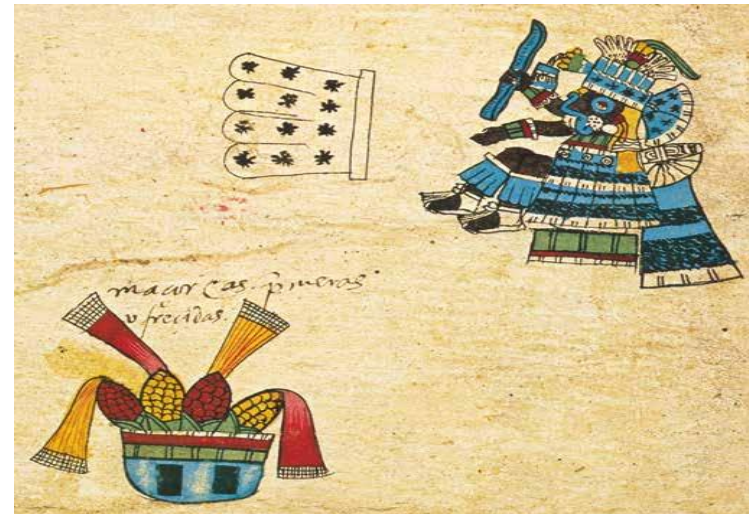 macorcas. p̃meras
ofreçidas.